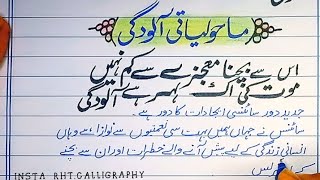 ماحولیاتی آلودگی
اس سے بچنا معجزے سے کم نہیں
موت کی اک لہر ہے آلودگی
جدید دور سائنسی ایجادات کا دور ہے۔
سائنس نے جہاں ہمیں بہت سی نعمتوں سے نوازا ہے وہاں
انسانی زندگی کے لیے پیش آنے والے خطرات اور ان سے بچنے
INSTA RHT.CALLIGRAPHY